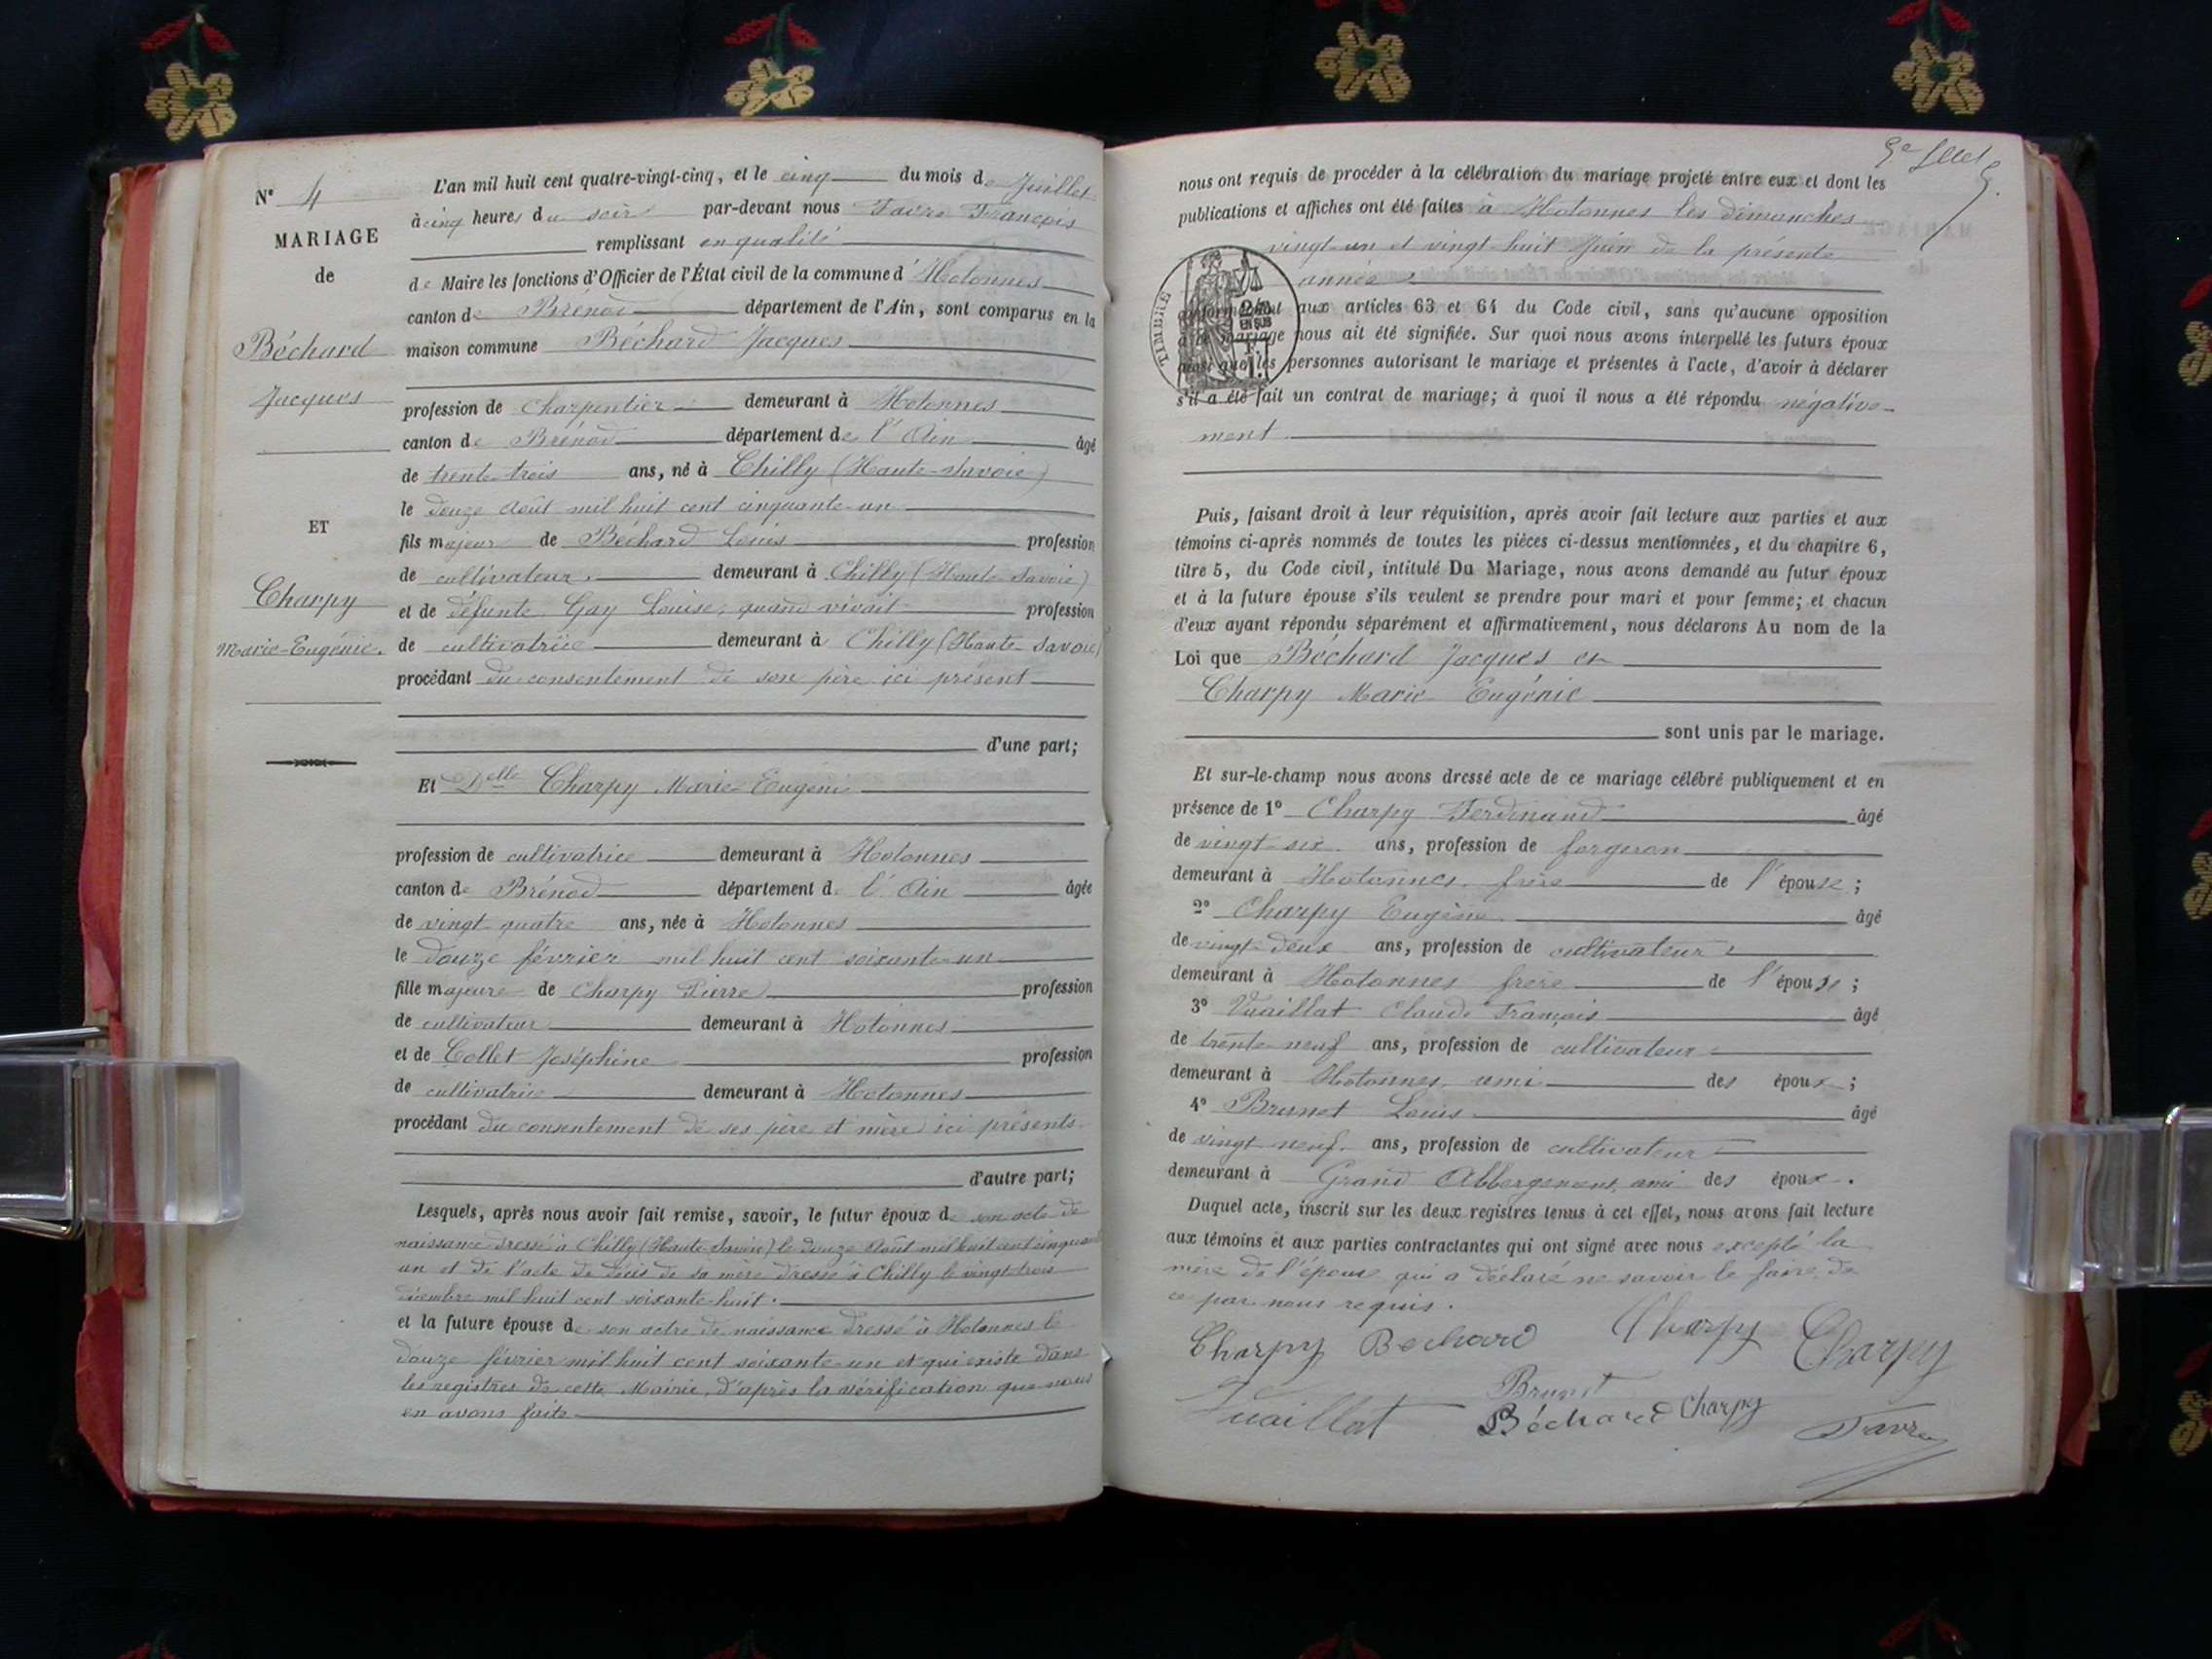 N° 4
MARIAGE
de
Béchard
Jacques
ET
Charpy
Marie-Eugénie.
L'an mil huit cent quatre-vingt-cinq, et le cinq du mois de Juillet
à cinq heures du soir par-devant nous Favre François
remplissant en qualité
de Maire les fonctions d'Officier de l'État civil de la commune d'Hotonnes
canton de Brénod département de l'Ain, sont comparus en la
maison commune Béchard Jacques
profession de Charpentier demeurant à Hotonnes
canton de Brénod département de l'Ain âgé
de trente-trois ans, né à Chilly (Haute-Savoie)
le douze Août mil huit cent cinquante-un
fils majeur de Béchard Louis profession
de cultivateur demeurant à Chilly (Haute-Savoie)
et de défunte Gay Louise, quand vivait profession
de cultivatrice demeurant à Chilly (Haute-Savoie)
procédant du consentement de son père ici présent
d'une part;
Et Delle Charpy Marie-Eugénie
profession de cultivatrice demeurant à Hotonnes
canton de Brénod département de l'Ain âgée
de vingt-quatre ans, née à Hotonnes
le douze février mil huit cent soixante-un
fille majeure de Charpy Pierre profession
de cultivateur demeurant à Hotonnes
et de Collet Joséphine profession
de cultivatrice demeurant à Hotonnes
procédant du consentement de ses père et mère ici présents.
d'autre part;
Lesquels, après nous avoir fait remise, savoir, le futur époux de son acte de
naissance dressé à Chilly (Haute-Savoie) le douze Août mil huit cent cinquante
un et de l'acte de décès de sa mère dressé à Chilly le vingt-trois
décembre mil huit cent soixante-huit.
et la future épouse de son acte de naissance dressé à Hotonnes le
douze février mil huit cent soixante-un et qui existe dans
les registres de cette Mairie, d'après la vérification que nous
en avons faite
nous ont requis de procéder à la célébration du mariage projeté entre eux et dont les
publications et affiches ont été faites à Hotonnes les dimanches
vingt-un et vingt-huit Juin de la présente
année
TIMBRE
conformément aux articles 63 et 64 du Code civil, sans qu'aucune opposition
à ce mariage nous ait été signifiée. Sur quoi nous avons interpellé les futurs époux
ainsi que les personnes autorisant le mariage et présentes à l'acte, d'avoir à déclarer
s'il a été fait un contrat de mariage; à quoi il nous a été répondu négative-
ment
Puis, faisant droit à leur réquisition, après avoir fait lecture aux parties et aux
témoins ci-après nommés de toutes les pièces ci-dessus mentionnées, et du chapitre 6,
titre 5, du Code civil, intitulé Du Mariage, nous avons demandé au futur époux
et à la future épouse s'ils veulent se prendre pour mari et pour femme; et chacun
d'eux ayant répondu séparément et affirmativement, nous déclarons Au nom de la
Loi que Béchard Jacques et
Charpy Marie-Eugénie
sont unis par le mariage.
Et sur-le-champ nous avons dressé acte de ce mariage célébré publiquement et en
présence de 1° Charpy Ferdinand âgé
de vingt-six ans, profession de forgeron
demeurant à Hotonnes, frère de l'épouse;
2° Charpy Eugène âgé
de vingt-deux ans, profession de cultivateur
demeurant à Hotonnes frère de l'épouse;
3° Vuaillat Claude François âgé
de trente-neuf ans, profession de cultivateur
demeurant à Hotonnes, ami des époux;
4° Brunet Louis âgé
de vingt-neuf ans, profession de cultivateur
demeurant à Grand Abbergement, ami des époux.
Duquel acte, inscrit sur les deux registres tenus à cet effet, nous avons fait lecture
aux témoins et aux parties contractantes qui ont signé avec nous excepté la
mère de l'épouse qui a déclaré ne savoir le faire, de
ce par nous requis.
Charpy Bechard Charpy Charpy
Vuaillat Brunet
Béchard Charpy Favre